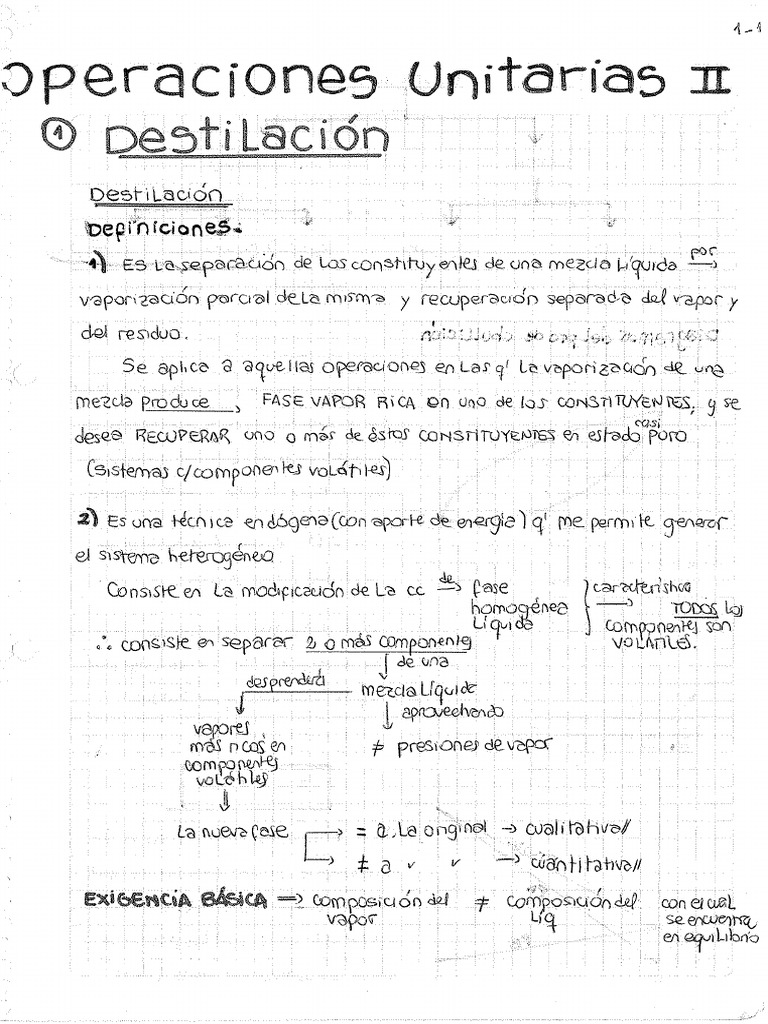 1-1
Operaciones Unitarias II
① Destilación
Destilación
Definiciones.
1) Es la separación de los constituyentes de una mezcla líquida por →
vaporización parcial de la misma y recuperación separada del vapor y
del residuo.
Se aplica a aquellas operaciones en las q' la vaporización de una
mezcla produce, FASE VAPOR RICA en uno de los CONSTITUYENTES, y se
desea RECUPERAR uno o más de éstos CONSTITUYENTES en estado casi puro
(sistemas c/componentes volátiles)
2) Es una técnica endógena (con aporte de energía) q' me permite generar
el sistema heterogéneo
Consiste en la modificación de la cc de → fase homogénea líquida } característica → TODOS los componentes son VOLÁTILES.
∴ consiste en separar 2 o más componentes
de una
desprenderá
mezcla líquida
aprovechando
vapores
más ricos en
componentes
volátiles
≠ presiones de vapor
La nueva fase → = a la original → cualitativa//
→ ≠ a " " → cuantitativa//
EXIGENCIA BÁSICA → composición del vapor ≠ composición del líq con el cual se encuentra en equilibrio